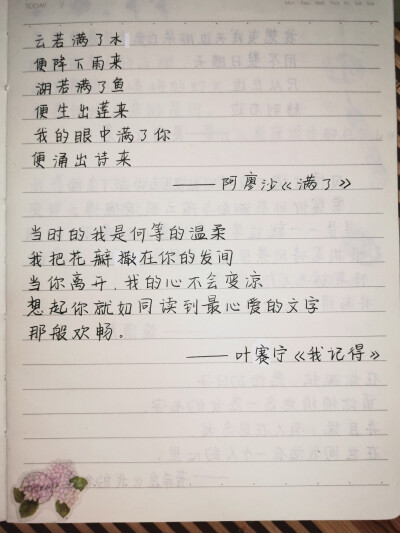 TODAY
云若满了水
便降下雨来
湖若满了鱼
便生出莲来
我的眼中满了你
便涌出诗来
——阿廖沙《满了》
当时的我是何等的温柔
我把花瓣撒在你的发间
当你离开，我的心不会变凉
想起你就如同读到最心爱的文字
那般欢畅。
——叶赛宁《我记得》